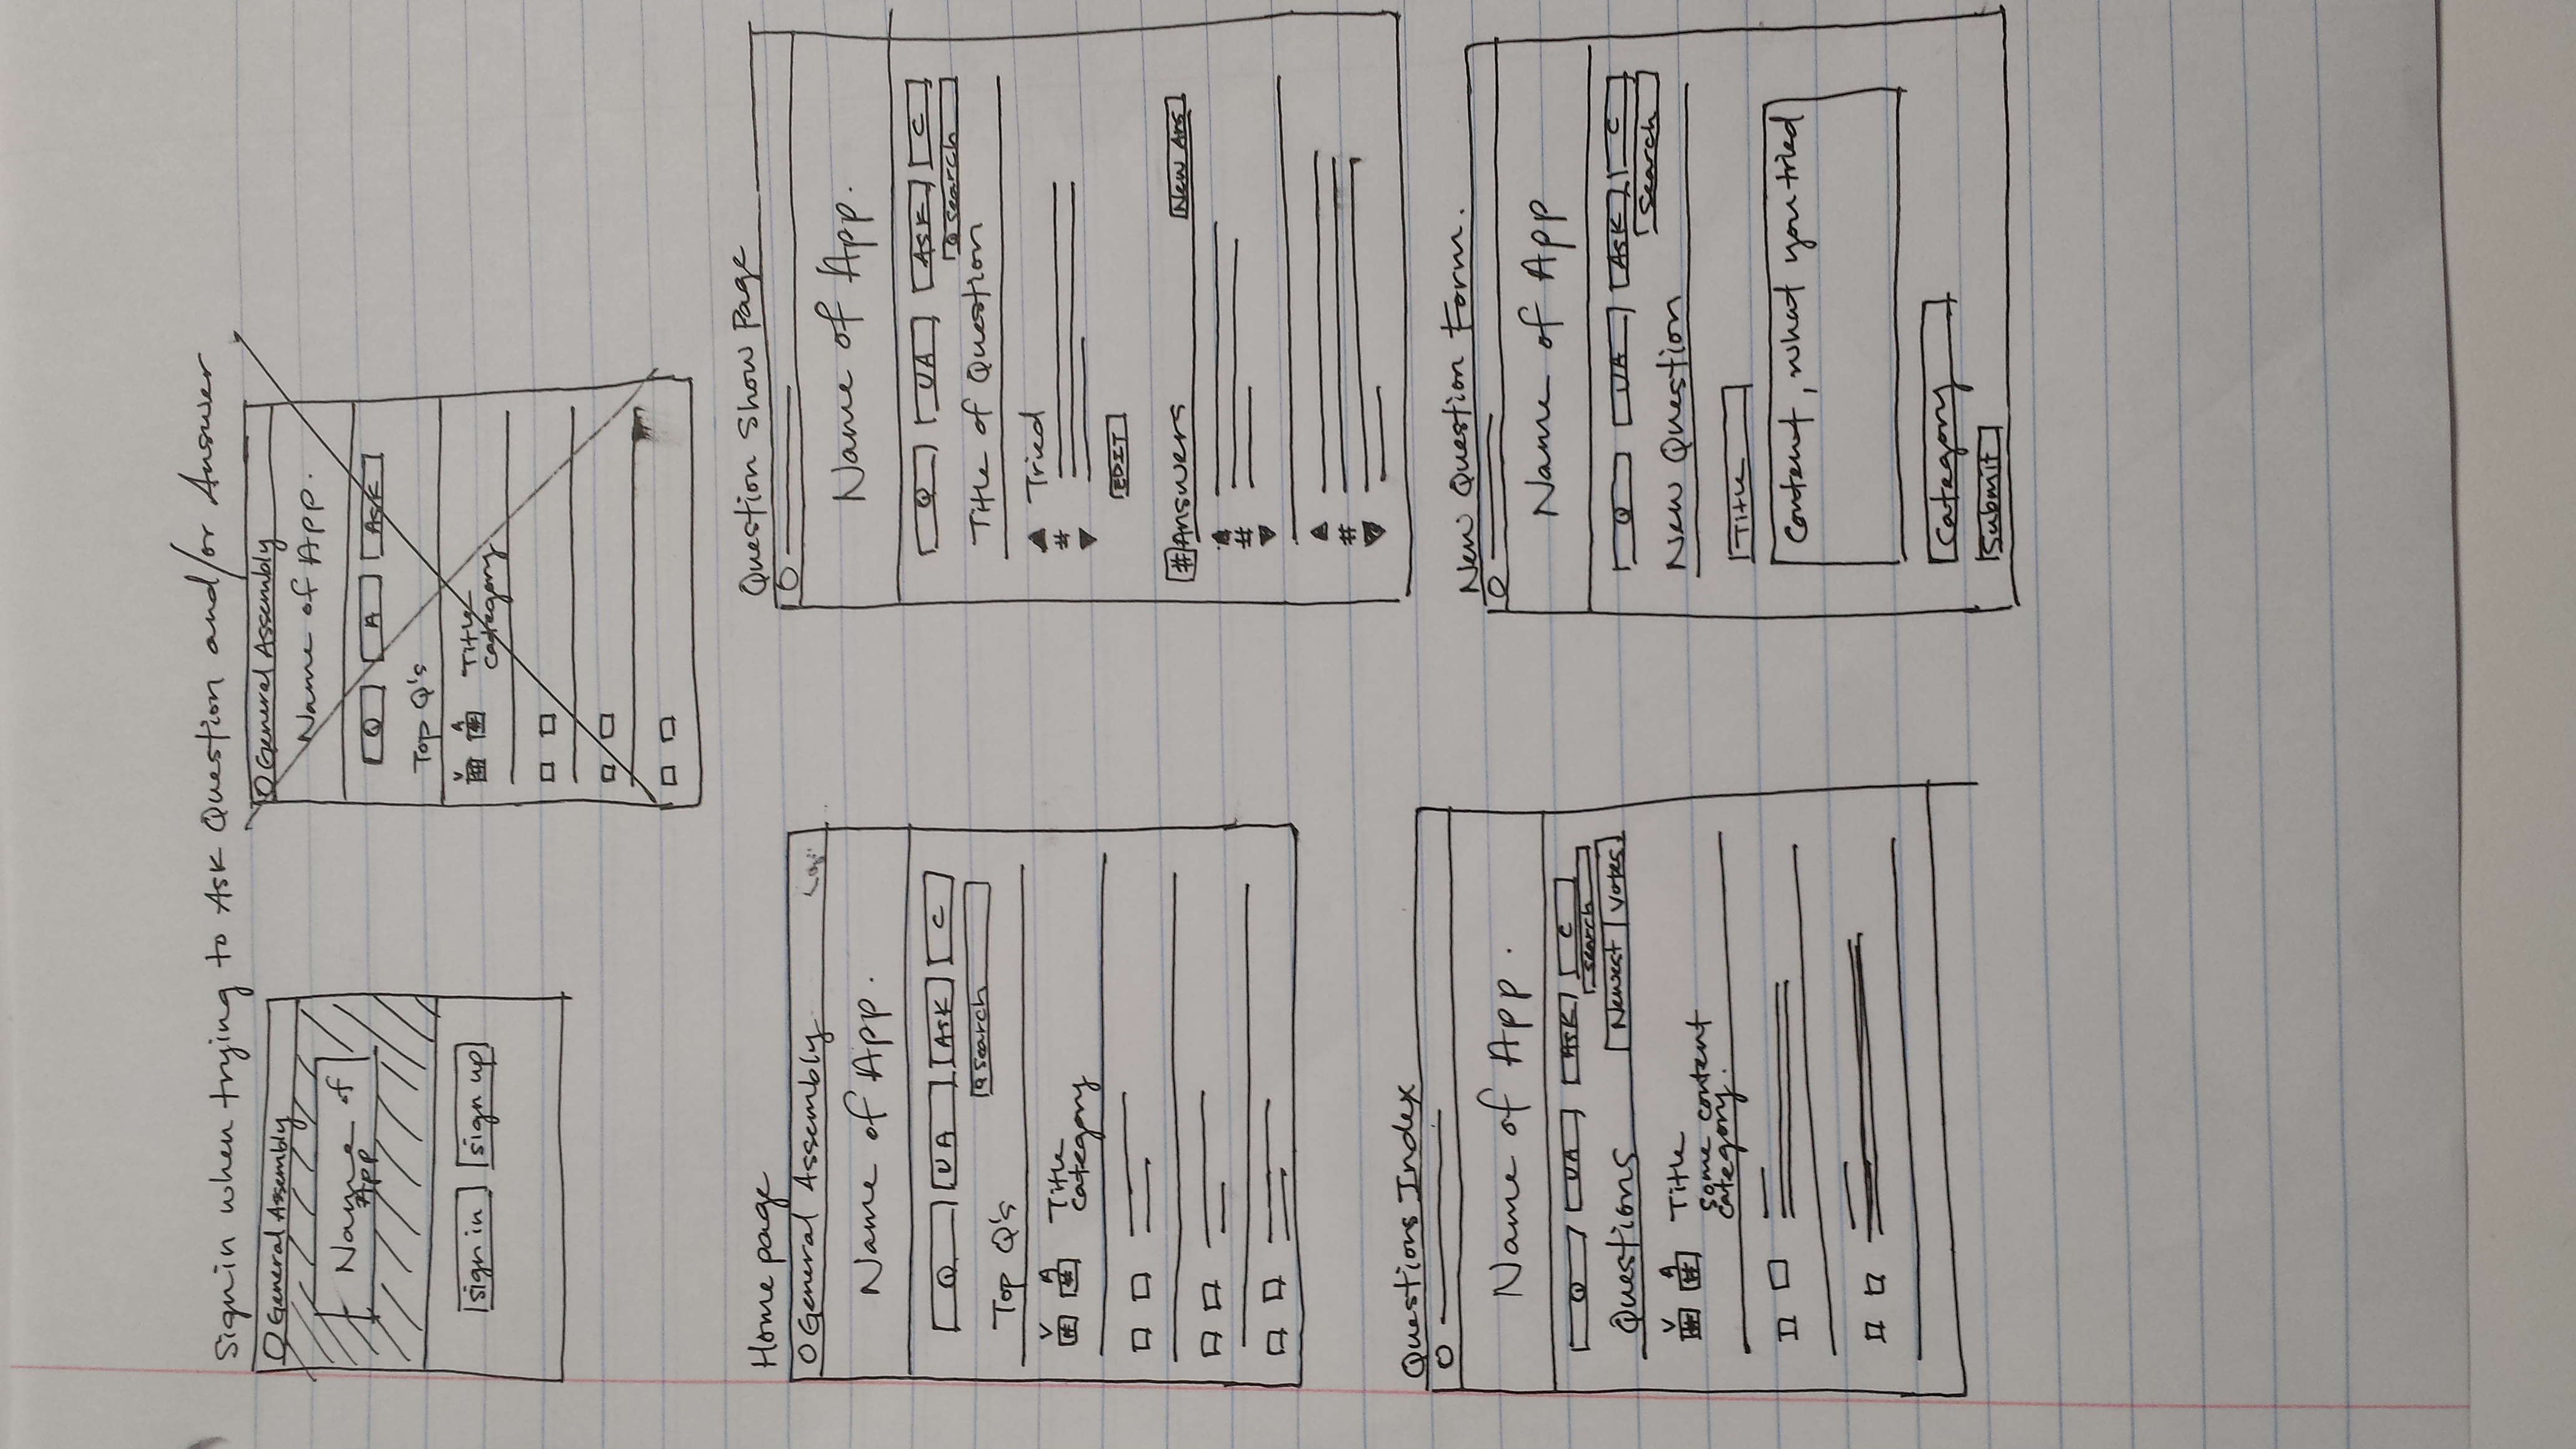 Sign in when trying to Ask Question and/or Answer
O General Assembly
Name of
App
sign in
sign up
O General Assembly
Name of App.
Q A ASK
Top Q's
V A
# # Title
Category
Home page
O General Assembly
Name of App.
Q UA ASK C
Q search
Top Q's
V A
# # Title
Category
Question Show Page
Name of App.
Q UA ASK C
Q search
Title of Question
▲ Tried
#
▼
EDIT
# Answers New Ans
▲
#
▼
▲
#
▼
Questions Index
Name of App.
Q UA ASK C
search
Questions Newest Votes
V A
# # Title
Some content
Category.
New Question Form.
Name of App
Q UA ASK C
search
New Question
Title
Content, what you tried
Category
Submit